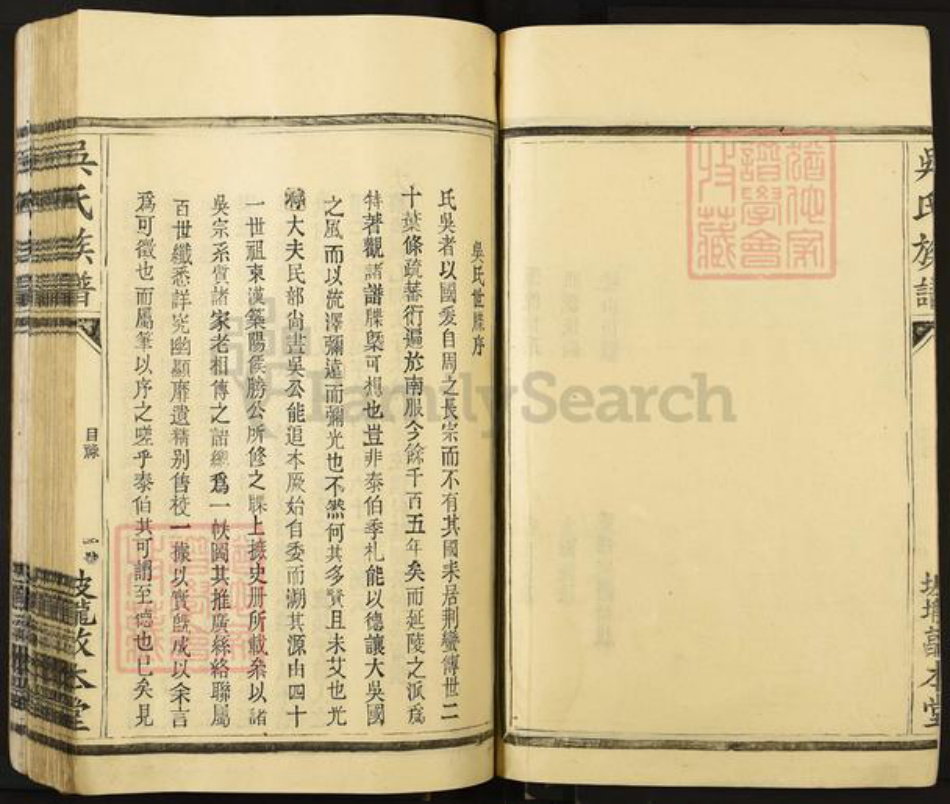 吳氏族譜
吳氏世牒序
氏吳者以國爰自周之長宗而不有其國來居荆蠻傳世二
十葉條疏蕃衍遍於南服今餘千百五年矣而延陵之派爲
特著觀諸譜牒槩可想也豈非泰伯季札能以德讓大吳國
之風而以流澤彌遠而彌光也不然何其多賢且未艾也光
祿大夫民部尚書吳公能追本厥始自委而溯其源由四十
一世祖東漢築陽侯勝公所修之牒上摭史册所載叅以諸
吳宗系質諸家老相傳之語總爲一帙圖其推廣絲絡聯屬
百世纖悉詳究幽顯靡遺精别讐校一據以實旣成以余言
爲可徵也而屬筆以序之嗟乎泰伯其可謂至德也已矣見
吳氏族譜
目牒
本堂
本堂
FamilySearch